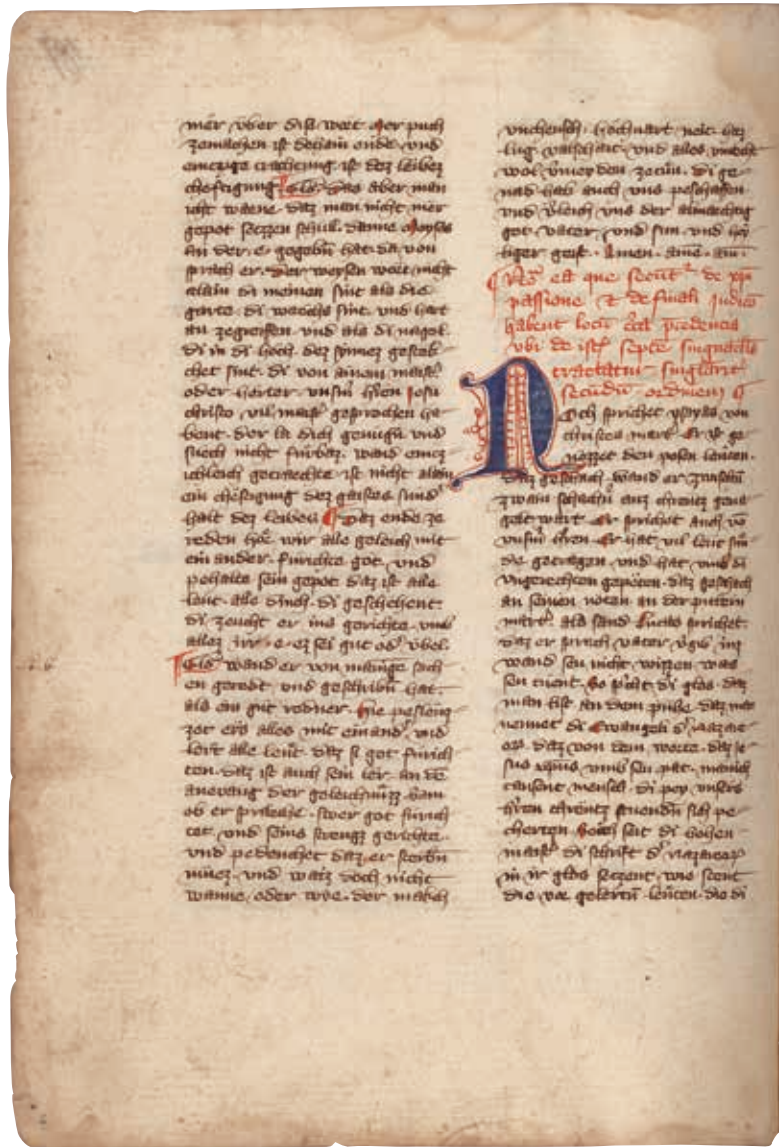 mer vber disst wort Mer puch
zemachen ist dechain ende vnd
emczige trachtung ist dez leibez
chestigung Glo. daz aber man
icht waene daz man nicht mer
gepot seczzen schul danne Moyses
in der e gegebn hat da von
sprach er. Der weysen wort nicht
alain di meinen sint als die
garte di waechs sint vnd hart
an zegreiffen vnd als di nagel
di in di hoch dez synnez gestek
chet sint di von ainem maist
oder herter vnsm hren Jesu
christo vil maist gesprochen he
bent der la dich genugn vnd
suech nicht furbaz wand emcz
ichleich getraechte ist nicht alain
ein chestigung dez gaistes sund
halt dez leibes Daz ende ze
reden hoer wir alle geleich mit
ein ander furichte got vnd
pehalte sein gepot daz ist alle
leut alle dinch di geschehent
di zeucht er ins gerichte vmb
allez irr e ez sei gut od vbel.
Glo wand er von manige sach
en geredt vnd geschribn hat
als ein gut redner hie pesleuz
zet erz alles mit einand vnd
lert alle leut daz si got furich
ten daz ist auch sein ler an de
anevang der geleichnuzz Sam
ob er spraeche swer got furich
tet vnd seins strengz gerichte
vnd pedenchet daz er sterbn
muez vnd waiz doch nicht
wanne oder wye der mach
vnchensch hochvart neit haz
lug valschait vnd alles vnrecht
wol vermeyden zecun di ge
nad hab auch vns peschaffen
vnd verleich vns der almaechtig
got vater vnd sun vnd hey
liger geist Amen ame am
ea que secunt de xpi
passione et de finali iudicio
habent locum precedencia
vbi de ist septe singnaclis
tractatur singlarit
secundu ordinem
Noch sprichet ysayas von
christes mart Er ist ge
nozzet den posen leuten
daz geschach wand er zwischn
zwain schachn anz chreucz gena
gelt wart Er sprichet auch vo
vnsm hren Er hat vil leut sun
de getragen vnd hat vmb di
vngerechten gepeten daz geschach
an seinen noten an der pittern
mart als sand Lucas sprichet
daz er sprach vater vgib in
wand seu nicht wizzen was
seu tuent So spicht di glos daz
man list an dem puche daz man
nennet di Ewangeli d nazare
os daz von dem worte daz ie
sus xpus vmb seu pat manich
tausent mensch di pey vnsers
hren chreucz stuendn sich pe
cherten Doch seit di hohen
maist di schrift d nazareorum
in ir glos seczent wie stent
die vor gelertn leuten die di